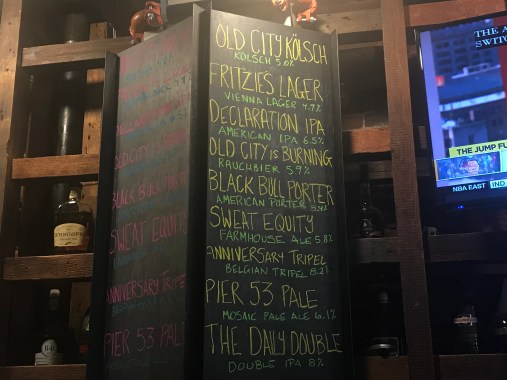 OLD CITY KÖLSCH
KÖLSCH 5.0%
FRITZIES LAGER
VIENNA LAGER 4.7%
DECLARATION IPA
AMERICAN IPA 6.5%
OLD CITY IS BURNING
RAUCHBIER 5.9%
BLACK BULL PORTER
AMERICAN PORTER
SWEAT EQUITY
FARMHOUSE ALE 5.8%
ANNIVERSARY TRIPEL
BELGIAN TRIPEL 8.2%
PIER 53 PALE
MOSAIC PALE ALE 6.1%
THE DAILY DOUBLE
DOUBLE IPA 8%
OLD CITY
BLACK BULL POR
SWEAT EQUI
ANNIVERSARY TRIPE
PIER 53 PAL
THE A
SWITC
THE JUMP FU
NBA EAST IND